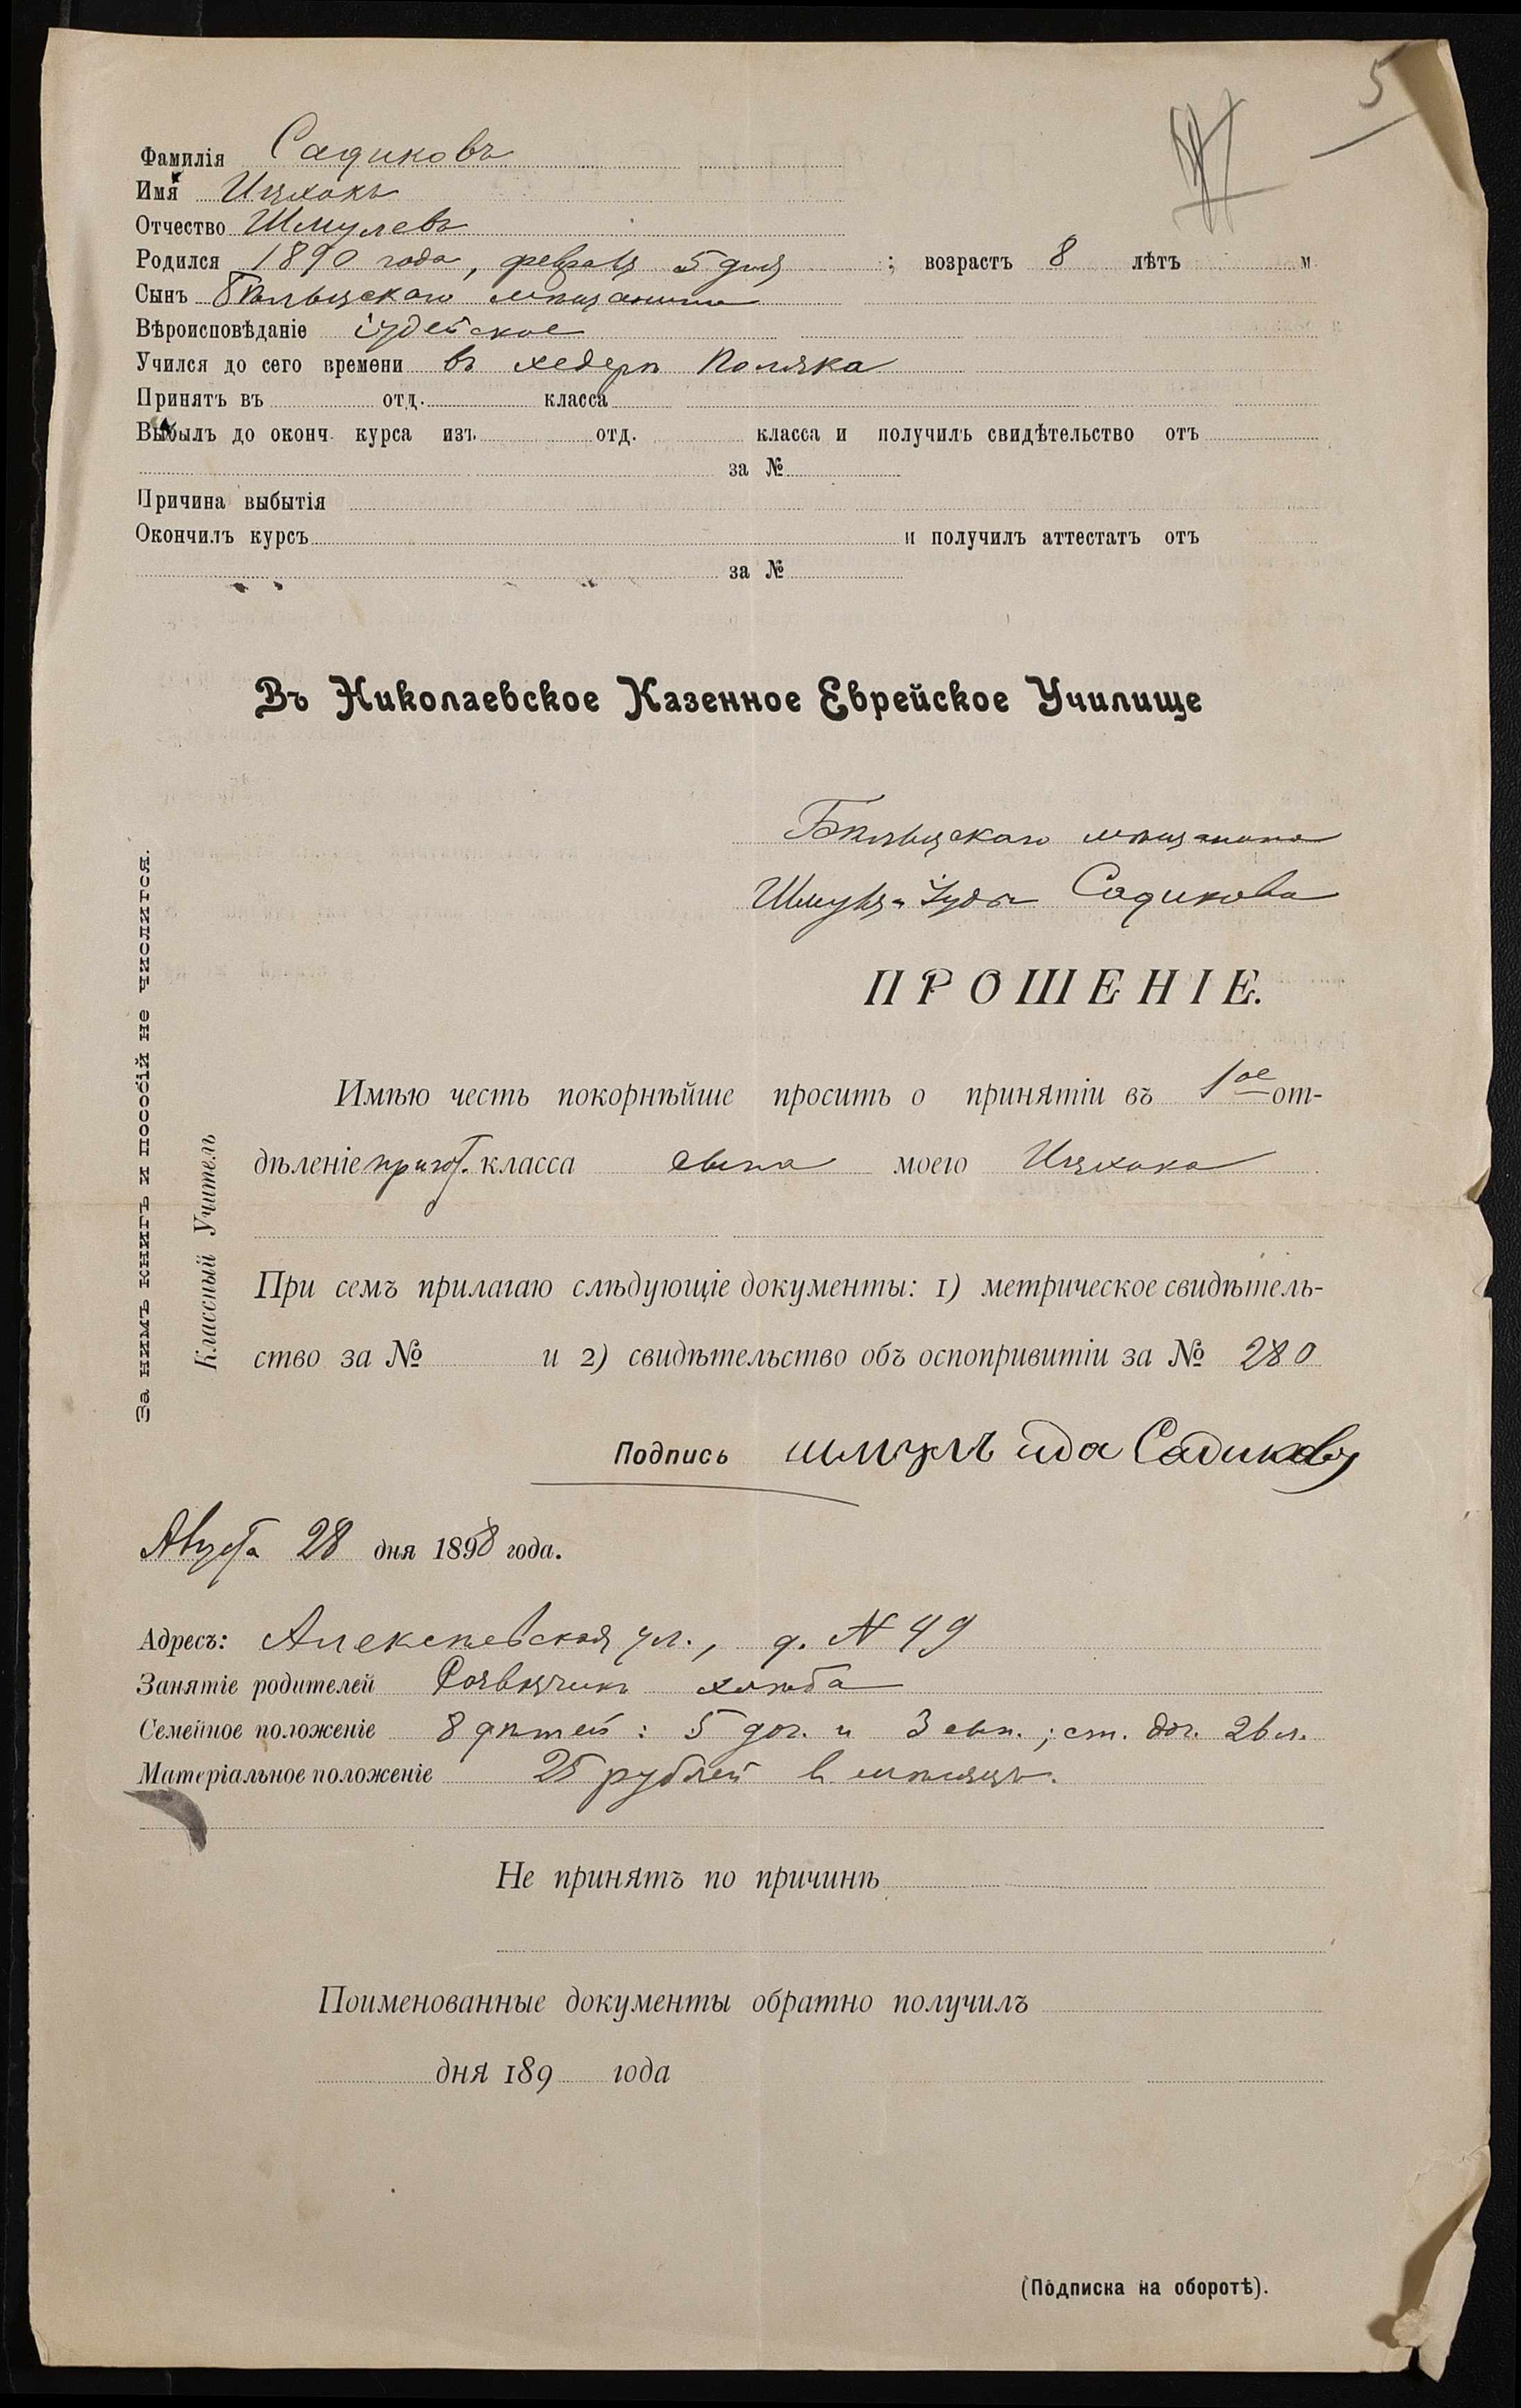 5
Фамилія Садиковъ
Имя Ицхокъ
Отчество Шмулевъ
Родился 1890 года, февраля 5 дня ; возрастъ 8 лѣтъ м.
Сынъ Бѣльцскаго мѣщанина
Вѣроисповѣданіе іудейское
Учился до сего времени въ хедерѣ Поляка
Принятъ въ отд. класса
Выбылъ до оконч. курса изъ отд. класса и получилъ свидѣтельство отъ
за №
Причина выбытія
Окончилъ курсъ и получилъ аттестатъ отъ
за №
Въ Николаевское Казенное Еврейское Училище
Бѣльцскаго мѣщанина
Шмуля-Іуды Садикова
ПРОШЕНІЕ.
Имѣю честь покорнѣйше просить о принятіи въ 1ое от-
дѣленіе пригот. класса сына моего Ицхока
При семъ прилагаю слѣдующіе документы: 1) метрическое свидѣтель-
ство за № и 2) свидѣтельство объ оспопривитіи за № 280
Подпись шмулъ ида Садиковъ
Августа 28 дня 1898 года.
Адресъ: Алексѣевская ул., д. N 49
Занятіе родителей хлѣба
Семейное положеніе 8 дѣтей: 5 доч. и 3 сын.; ст. доч. 26 л.
Матеріальное положеніе 25 рублей в мѣсяцъ.
Не принятъ по причинѣ
Поименованные документы обратно получилъ
дня 189 года
(Подписка на оборотѣ).
За нимъ книгъ и пособій не числится.
Классный Учитель